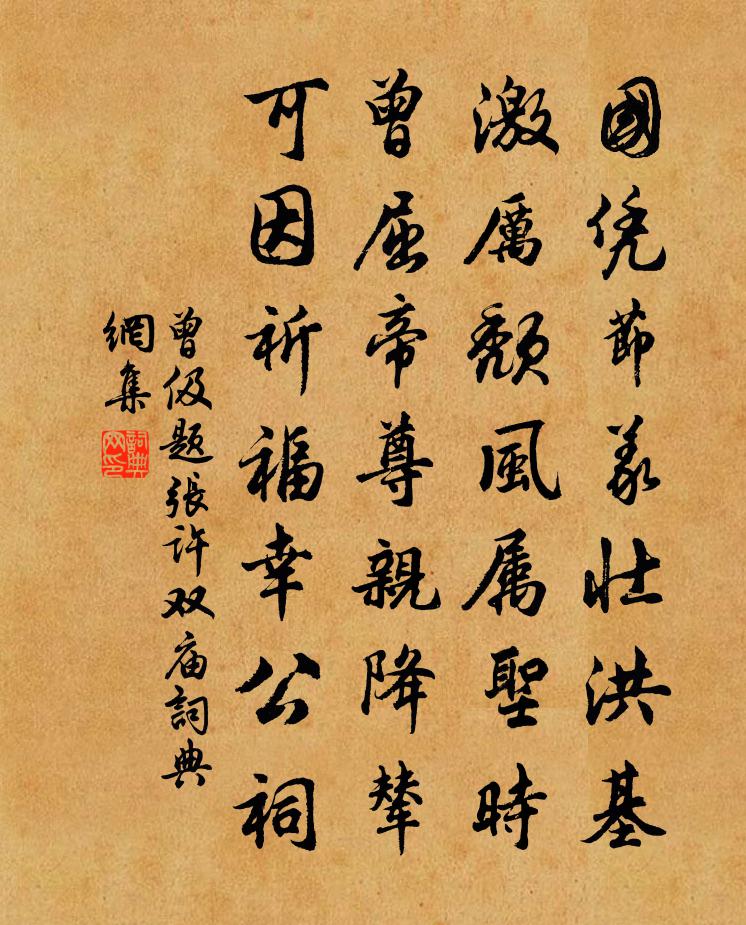 國凭節義壯洪基
激厲頹風属聖時
曾屈帝尊親降輦
可因祈福幸公祠
曾伋題張许双庙詞典
網集
詞典网印